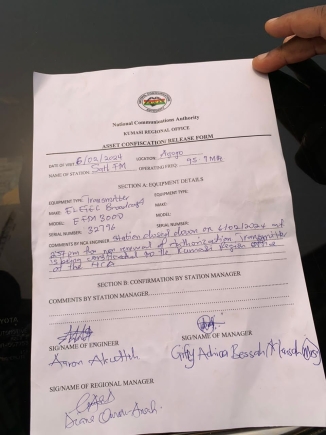 National Communications Authority
KUMASI REGIONAL OFFICE
ASSET CONFISCATION/RELEASE FORM
DATE OF VISIT 6/02/2024 LOCATION: Agogo
NAME OF STATION: FM OPERATING FREQ: 95.9MHz
SECTION A: EQUIPMENT DETAILS
EQUIPMENT TYPE: Transmitter EQUIPMENT TYPE:
MAKE: ELETEC Broadcast MAKE:
MODEL: MODEL:
SERIAL NUMBER: 32796 SERIAL NUMBER:
COMMENTS BY NCA ENGINEER: Station closed down on 6/02/2024 at
for non renewal of Authorization. Transmitter
is being to the Kumasi Region Office
of the NCA
SECTION B: CONFIRMATION BY STATION MANAGER
COMMENTS BY STATION MANAGER
SIG/NAME OF ENGINEER SIG/NAME OF MANAGER
SIG/NAME OF REGIONAL MANAGER